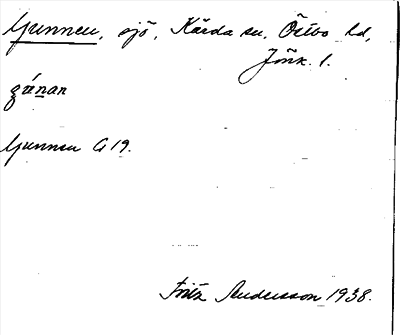 Gunnen, sjö, Kärda sn, Östbo hd,
Jönk. l.
gúnan
Gunnen G 19.
Fritz Andersson 1938.